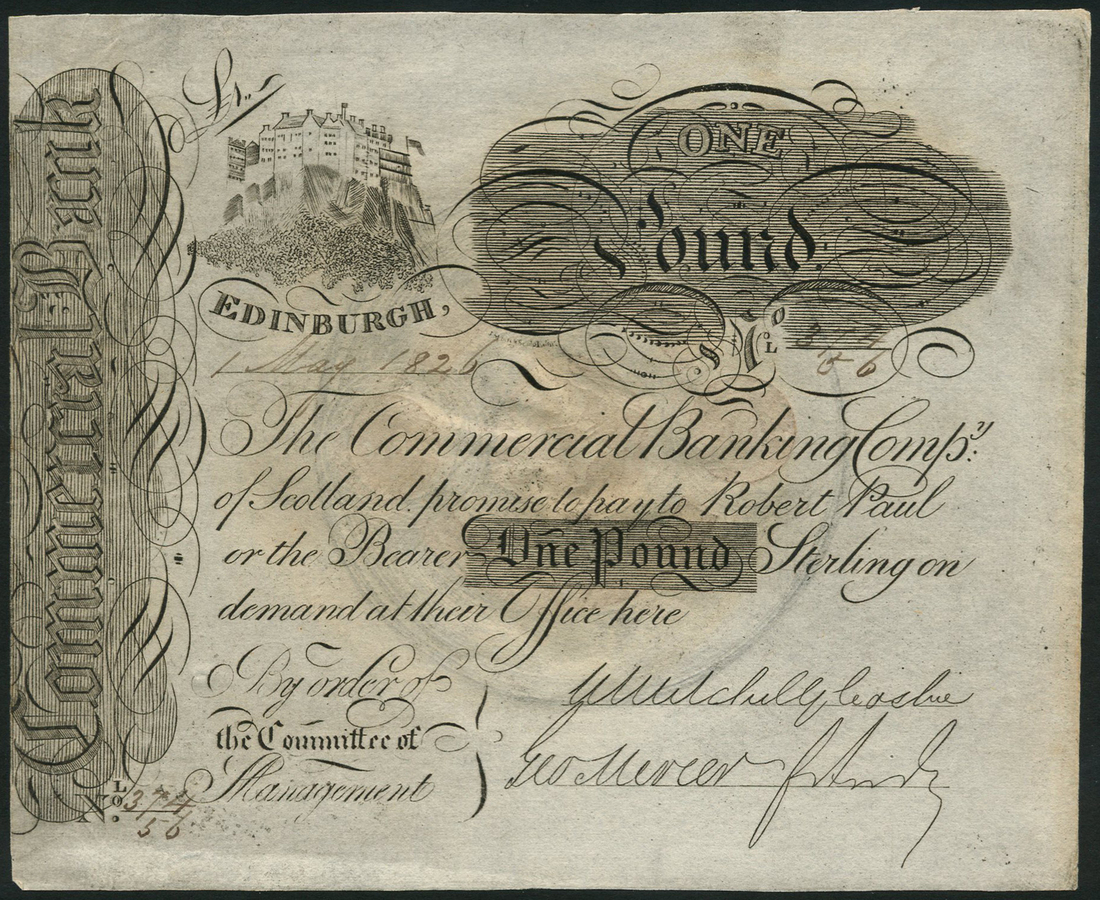 Commercial Bank
ONE
Pound.
EDINBURGH,
1 May 1826
The Commercial Banking Compy.
of Scotland promise to pay to Robert Paul
or the Bearer One Pound Sterling on
demand at their Office here
By order of
the Committee of
Management
Geo Mercer
No. 374
56